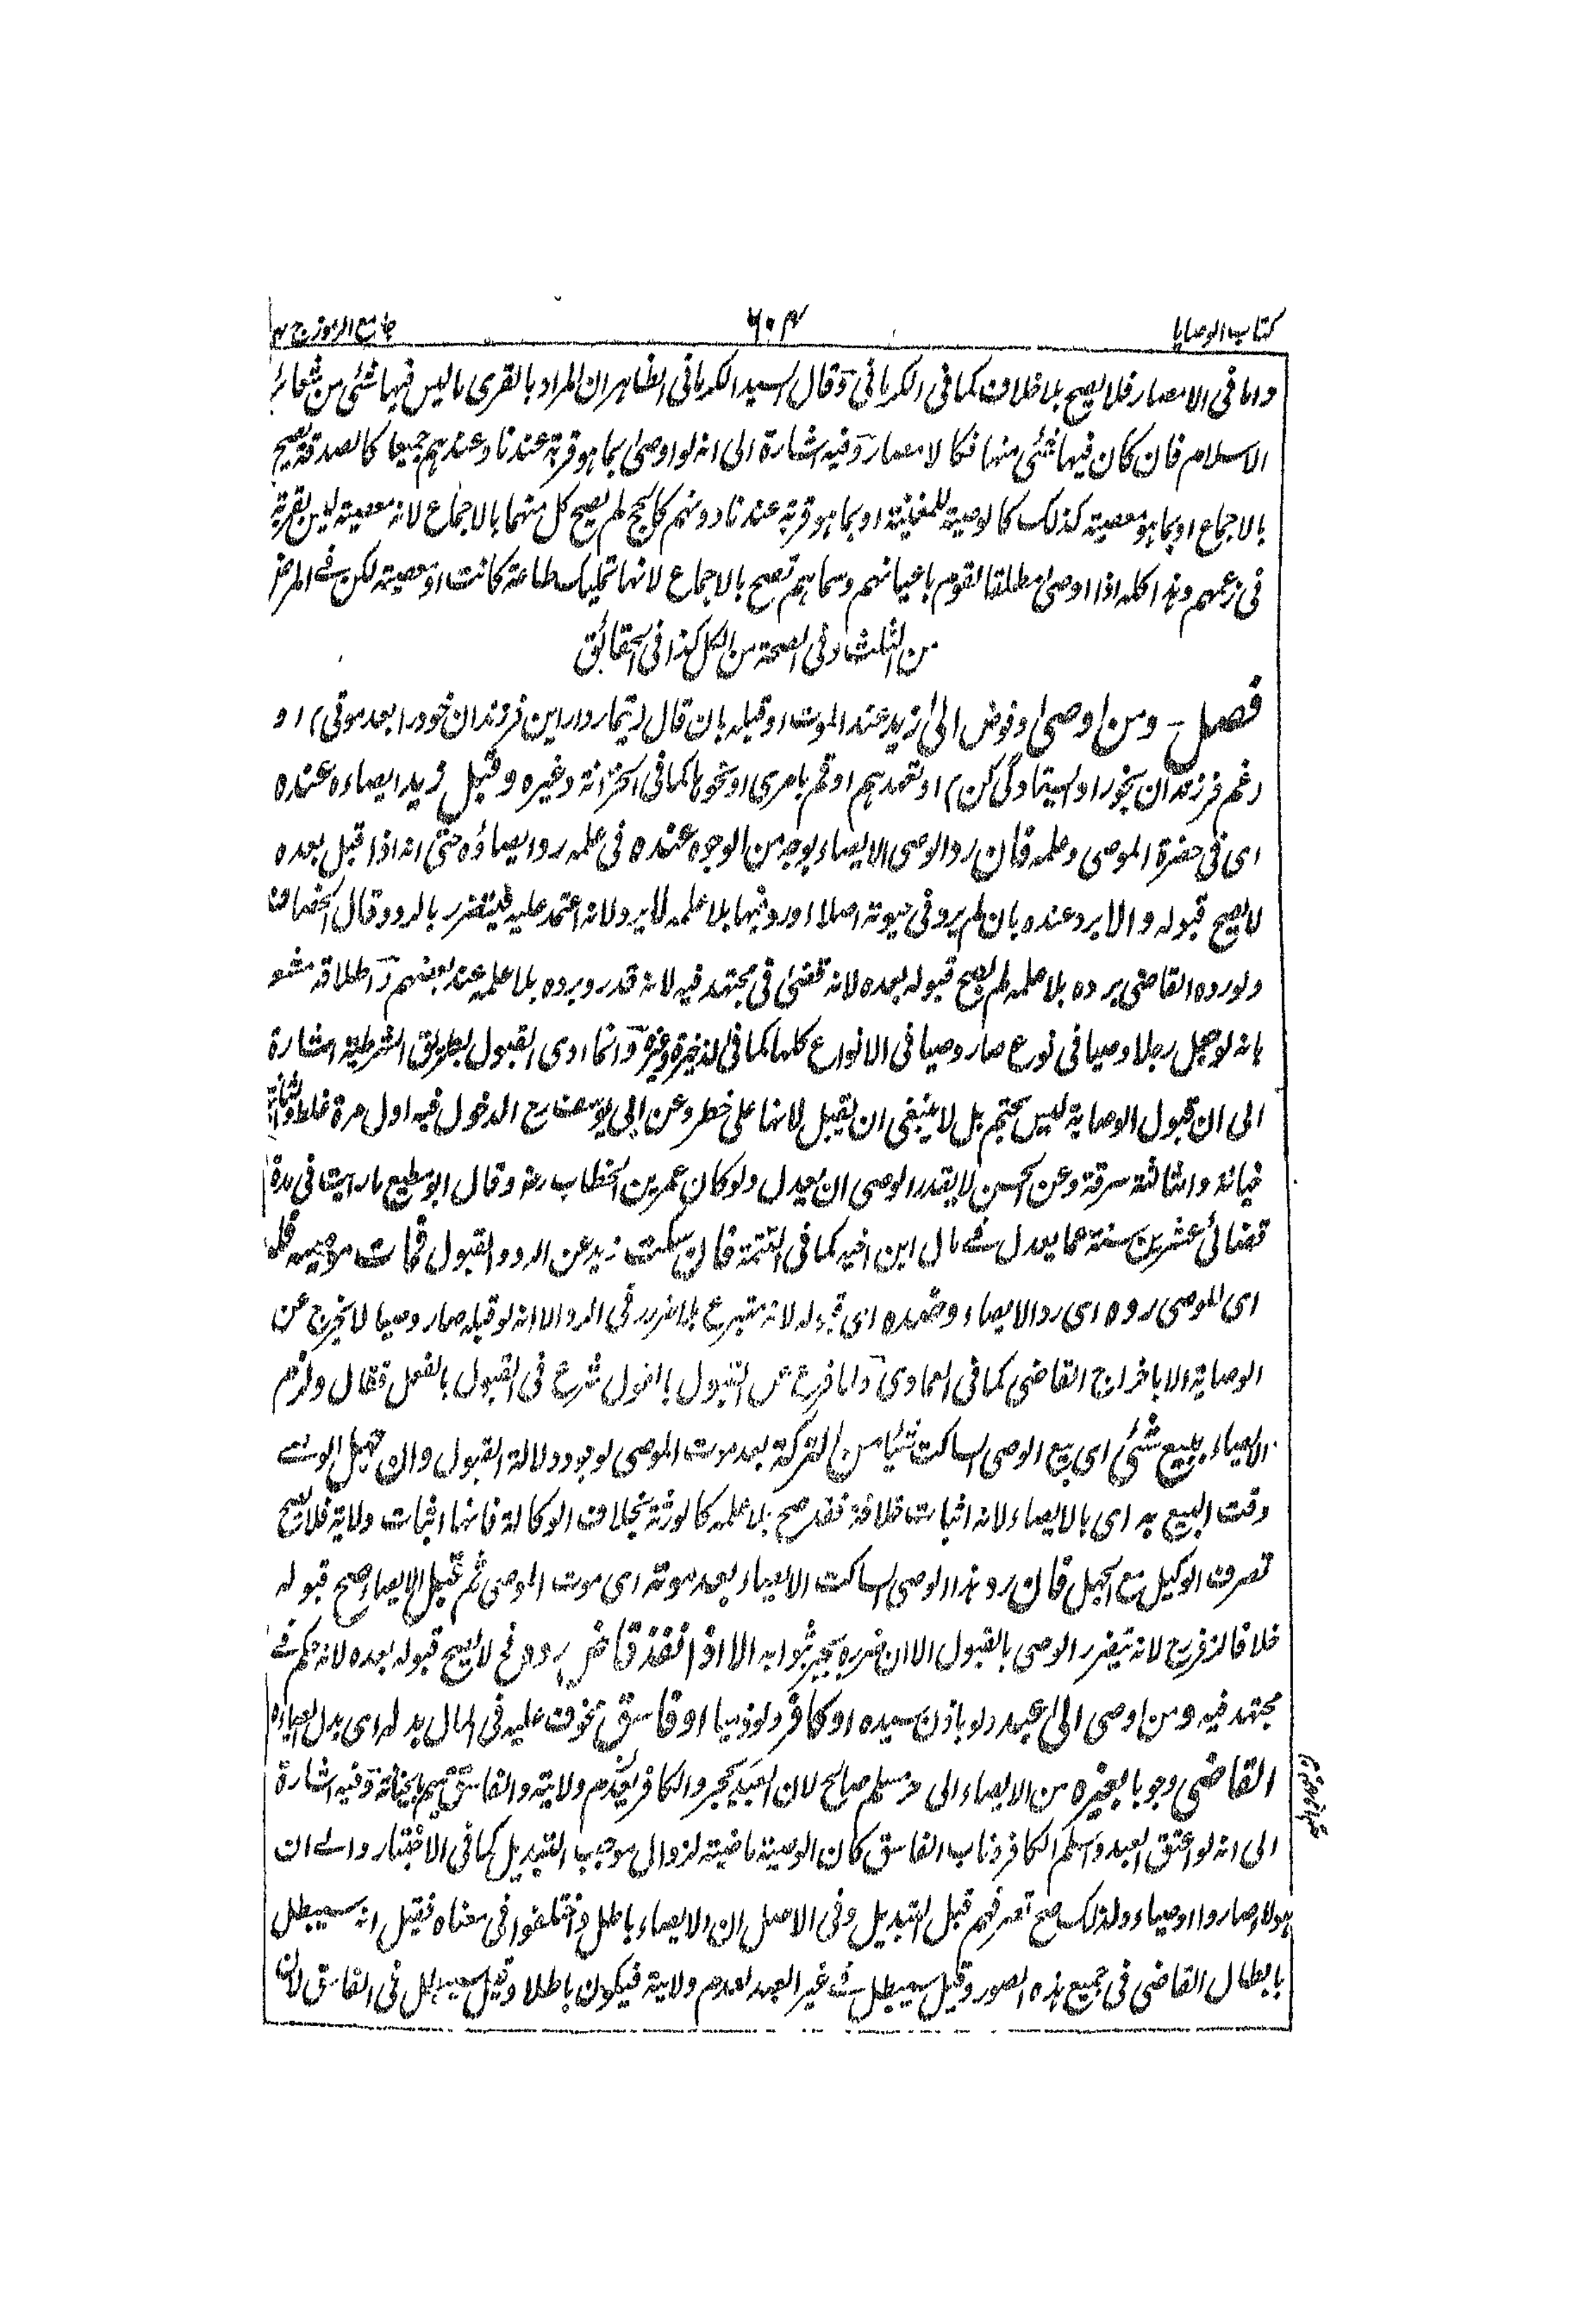 كتاب الوصايا
٦٠٤
جامع الرموز ج ٣
واما فى الامصار فلا يصح بلا خلاف كما فى الكرمانى وقال السيد الكرمانى الظاهر ان المراد بالقرى ما ليس فيها شئى من شعائر
الاسلام فان كان فيها شئى منها فكالامصار وفيه اشارة الى انه لو اوصى بما هو قربة عندنا وعندهم جميعا كالصدقة يصح
بالاجماع او بما هو معصية كذلك كالوصية للمغنية او بما هو قربة عندنا دونهم كالحج لم يصح كل منهما بالاجماع لانه معصية ليس بقربة
فى زعمهم وهذا كله اذا اوصى مطلقا لقوم باعيانهم وسماهم تصح بالاجماع لانها تمليك طاعة كانت او معصية لكن فى المرض
من الثلث وفى الصحة من الكل كذا فى الحقائق
فصل ـ ومن اوصى وفوض الى زيد عند الموت او قبله بان قال (تيمار دار اين فرزندان خود را بعد موتى) او
(غم فرزندان بخور او ايستادگى كن) او تعهدهم او قم بامرى او نحوها كما فى الخزانة وغيره وقبل زيد ايصاءه عنده
اى فى حضرة الموصى وعلمه فان رد الوصى الايصاء بوجه من الوجوه عنده فى علمه رد ايصاؤه حتى انه اذا قبل بعده
لا يصح قبوله والا يرد عنده بان لم يرد فى حيوته اصلا او رد فيها بلا علمه لا يرد لانه اعتمد عليه فيتضرر بالرد وقال الخصاف
ولو رده القاضى برده بلا علمه لم يصح قبوله بعده لانه قضى فى مجتهد فيه لانه قد رد برده بلا علمه عند بعضهم وَاطلاقه مشعر
بانه لو جعل رجلا وصيا فى نوع صار وصيا فى الانواع كلها كما فى الذخيرة وغيره وَانما ادى القبول بطريق الشرطية اشارة
الى ان قبول الوصاية ليس بحتم بل لا ينبغى ان يقبل لانها على خطر وعن ابى يوسف رح الدخول فيه اول مرة غلط والثانية
خيانة والثالثة سرقة وعن الحسن لا يقدر الوصى ان يعدل ولو كان عمر بن الخطاب رض وقال ابو مطيع ما رايت فى مدة
قضائى عشرين سنة عما يعدل فى مال ابن اخيه كما فى التتمة فان سكت زيد عن الرد والقبول فمات موصيه فله
اى للموصى رده اى رد الايصاء وضده اى قبوله لانه متبرع بلا ضرر فى الرد الا انه لو قبله صار وصيا لا يخرج عن
الوصاية الا باخراج القاضى كما فى العمادى وَلما فرغ عن القبول بالقول شرع فى القبول بالفعل فقال ولزم
الايصاء ببيع شئى اى بيع الوصى الساكت شيئا من التركة بعد موت الموصى لوجود دلالة القبول وان جهل الوصى
وقت البيع به اى بالايصاء لانه اثبات خلافة فقد صح بلا علمه كالورثة بخلاف الوكالة فانها اثبات ولاية فلا يصح
تصرف الوكيل مع الجهل فان رد هذا الوصى الساكت الايصاء بعد موته اى موت الموصى ثم قبل الايصاء صح قبوله
خلافا لزفر رح لانه يتضرر الوصى بالقبول الا ان ضرره يجبر ثوابه الا اذا نفذ قاض رده فح لا يصح قبوله بعده لانه حكم فى
مجتهد فيه ومن اوصى الى عبد ولو باذن سيده او كافر ولو ذميا او فاسق مخوف عليه فى المال بدله اى بدل العبد اه
القاضى وجوبا بغيره من الايصاء الى حر مسلم صالح لان العبد يحجر والكافر يعدم ولاية والفاسق يتهم بالخيانة وَفيه اشارة
الى انه لو اعتق العبد واسلم الكافر وتاب الفاسق كان الوصية ماضية لزوال موجب التبديل كما فى الاختيار والى ان
هولاء صاروا اوصياء ولذلك صح تصرفهم قبل التبديل وفى الاصل ان الايصاء باطل واختلفوا فى معناه فقيل انه سيبطل
بابطال القاضى فى جميع هذه الصور وقيل سيبطل فى غير العبد لعدم ولاية فيكون باطلا وقيل سيبطل فى الفاسق لان